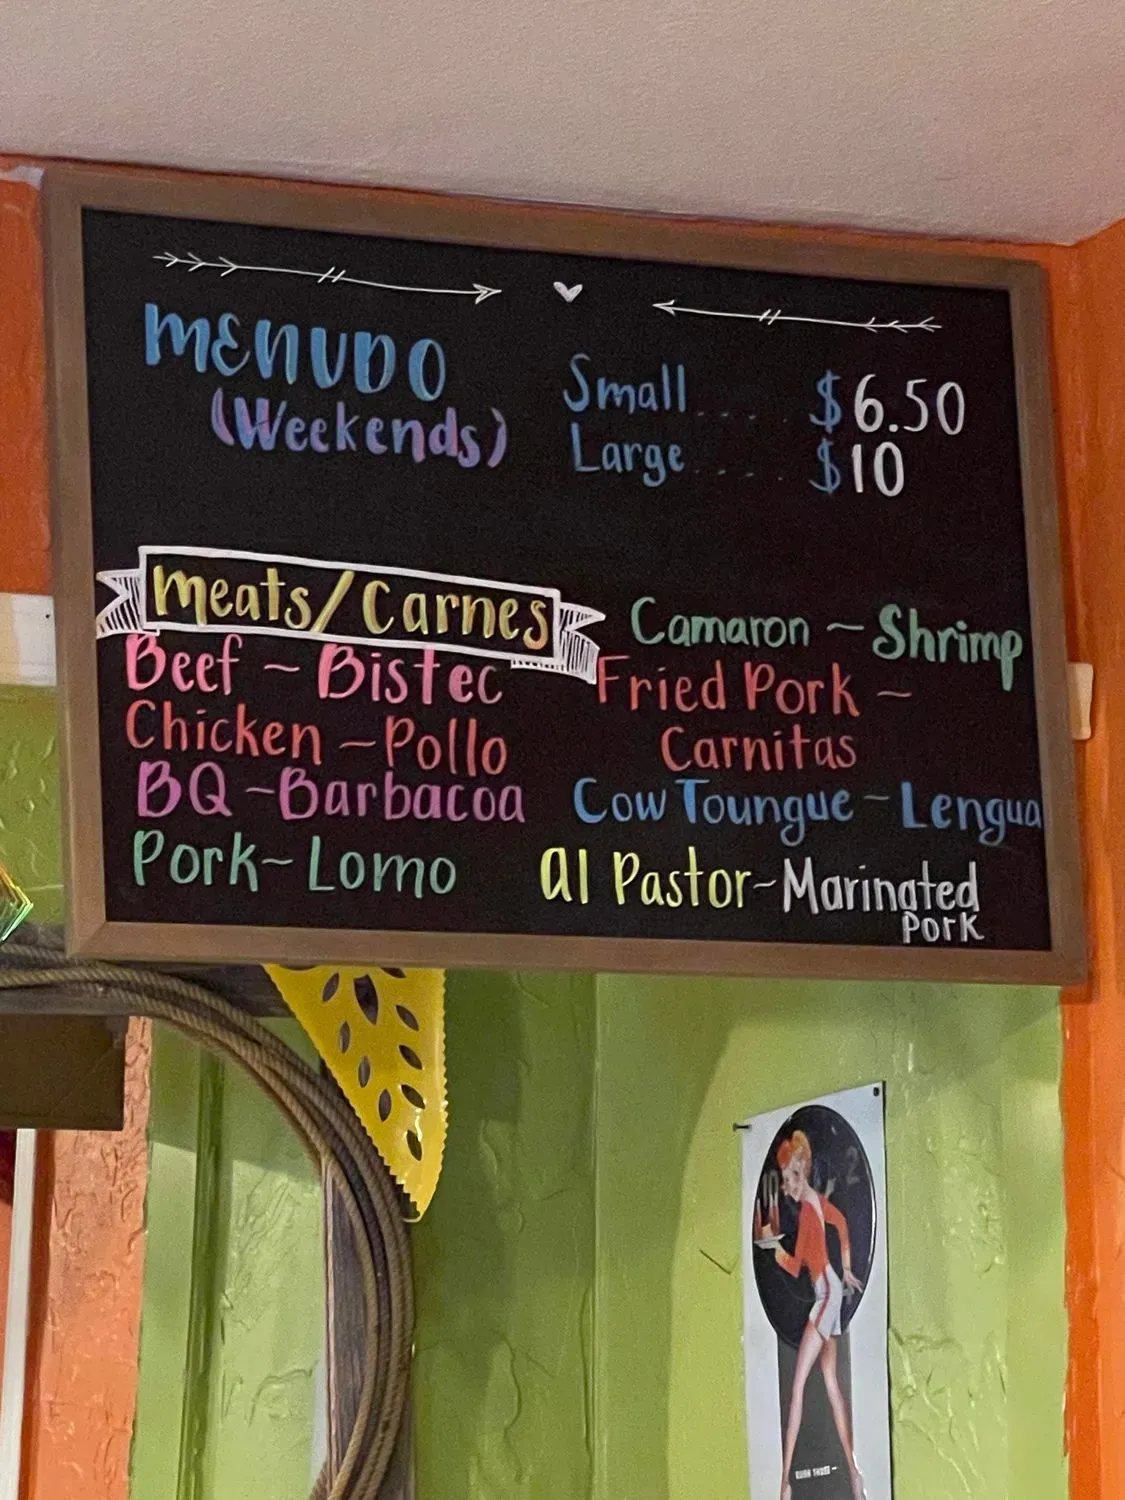 MENUDO
(Weekends)
Small .... $6.50
Large .... $10
Meats/Carnes
Beef ~ Bistec
Chicken ~ Pollo
BQ ~ Barbacoa
Pork ~ Lomo
Camaron ~ Shrimp
Fried Pork ~
Carnitas
Cow Toungue ~ Lengua
al Pastor ~ Marinated
Pork